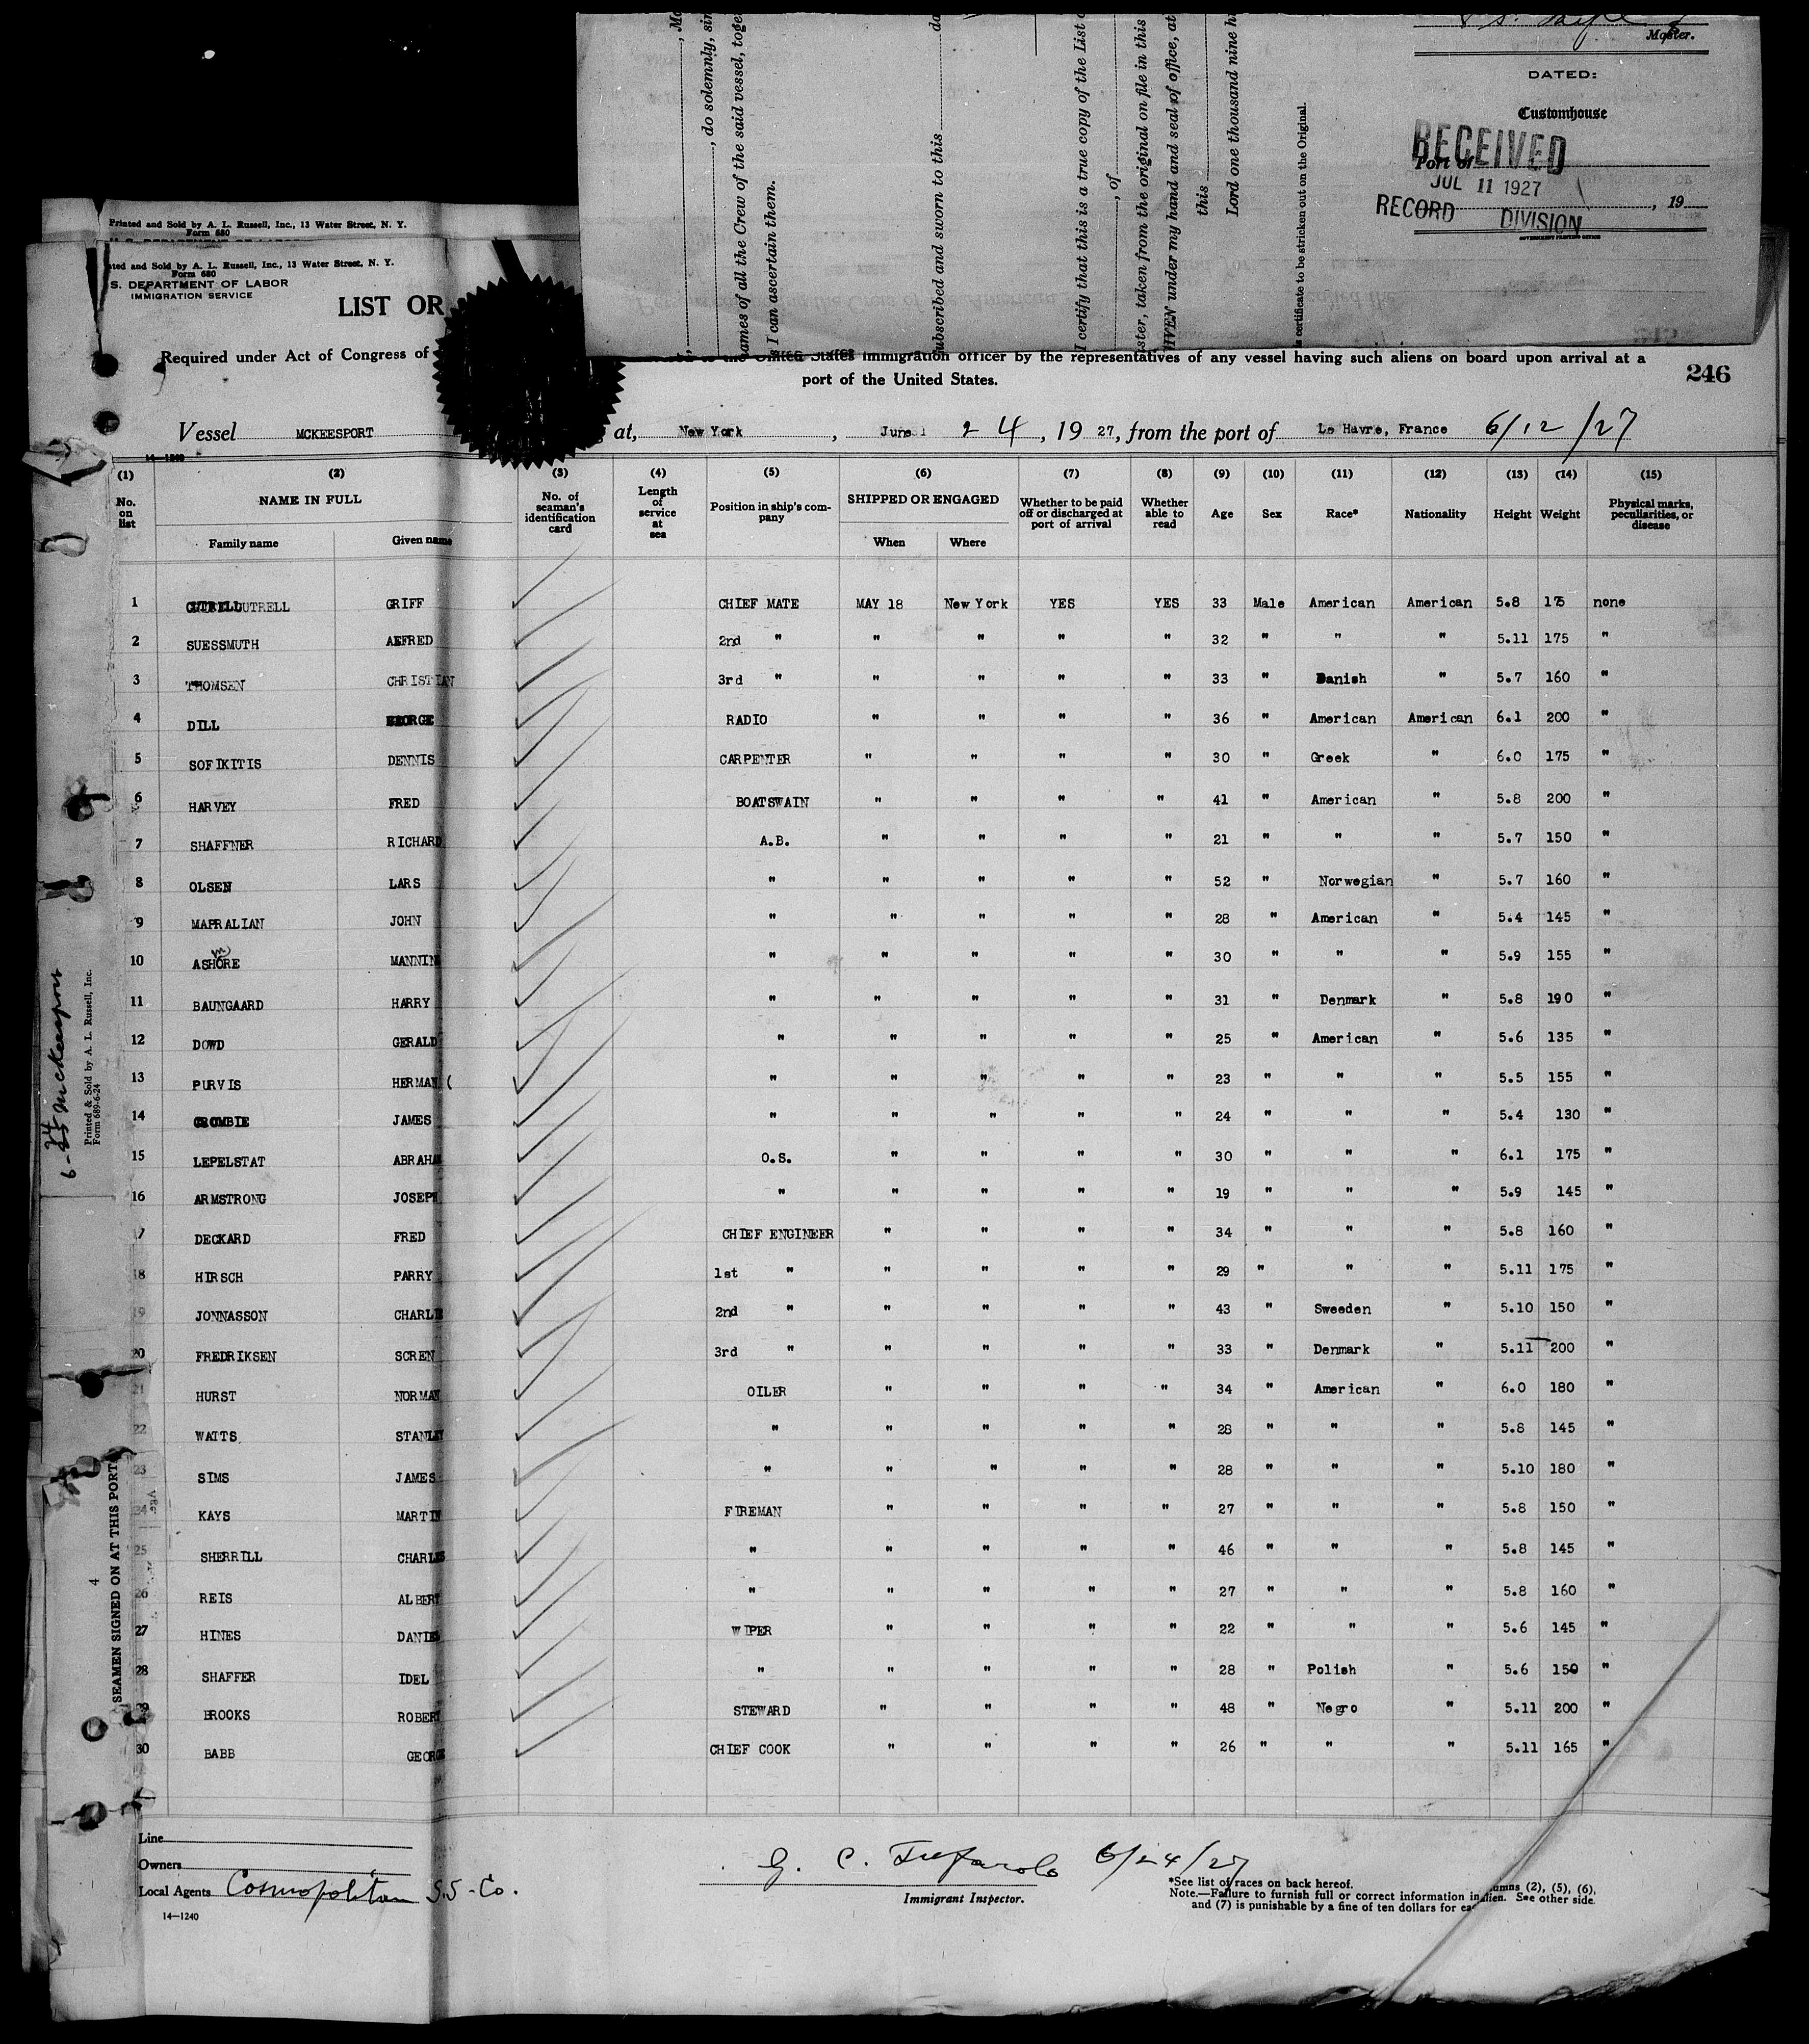 Master.
DATED:
Customhouse
RECEIVED
Port of
JUL 11 1927
, 19
RECORD DIVISION
GOVERNMENT PRINTING OFFICE
, do solemnly, sin
ames of all the Crew of the said vessel, toge
s I can ascertain them.
ubscribed and sworn to this
I certify that this is a true copy of the List o
, of
ster, taken from the original on file in this
GIVEN under my hand and seal of office, at
this
Lord one thousand nine h
s certificate to be stricken out on the Original.
Printed and Sold by A. L. Russell, Inc., 13 Water Street, N. Y.
Form 680
ted and Sold by A. L. Russell, Inc., 13 Water Street, N. Y.
Form 680
S. DEPARTMENT OF LABOR
IMMIGRATION SERVICE
LIST OR
Required under Act of Congress of the United States immigration officer by the representatives of any vessel having such aliens on board upon arrival at a
port of the United States.
246
Vessel MCKEESPORT at, New York, June 24, 1927, from the port of Le Havre, France 6/12/27
14—1240
(1) (2) (3) (4) (5) (6) (7) (8) (9) (10) (11) (12) (13) (14) (15)
No. on list NAME IN FULL No. of seaman's identification card Length of service at sea Position in ship's company SHIPPED OR ENGAGED Whether to be paid off or discharged at port of arrival Whether able to read Age Sex Race* Nationality Height Weight Physical marks, peculiarities, or disease
Family name Given name When Where
1 CUTRELL GRIFF CHIEF MATE MAY 18 New York YES YES 33 Male American American 5.8 175 none
2 SUESSMUTH ALFRED 2nd " " " " " 32 " " " 5.11 175 "
3 THOMSEN CHRISTIAN 3rd " " " " " 33 " Danish " 5.7 160 "
4 DILL GEORGE RADIO " " " " 36 " American American 6.1 200 "
5 SOFIKITIS DENNIS CARPENTER " " " " 30 " Greek " 6.0 175 "
6 HARVEY FRED BOATSWAIN " " " " 41 " American " 5.8 200 "
7 SHAFFNER RICHARD A.B. " " " " 21 " " " 5.7 150 "
8 OLSEN LARS " " " " " 52 " Norwegian " 5.7 160 "
9 MAPRALIAN JOHN " " " " " 28 " American " 5.4 145 "
10 ASHORE MANNIN " " " " " 30 " " " 5.9 155 "
11 BAUNGAARD HARRY " " " " " 31 " Denmark " 5.8 190 "
12 DOWD GERALD " " " " " 25 " American " 5.6 135 "
13 PURVIS HERMAN ( " " " " " 23 " " " 5.5 155 "
14 CROMBIE JAMES " " " " " 24 " " " 5.4 130 "
15 LEPELSTAT ABRAHAM O.S. " " " " 30 " " " 6.1 175 "
16 ARMSTRONG JOSEPH " " " " " 19 " " " 5.9 145 "
17 DECKARD FRED CHIEF ENGINEER " " " " 34 " " " 5.8 160 "
18 HIRSCH PARRY 1st " " " " " 29 " " " 5.11 175 "
19 JONNASSON CHARLIE 2nd " " " " " 43 " Sweeden " 5.10 150 "
20 FREDRIKSEN SCREN 3rd " " " " " 33 " Denmark " 5.11 200 "
21 HURST NORMAN OILER " " " " 34 " American " 6.0 180 "
22 WATTS STANLEY " " " " " 28 " " " 5.8 145 "
23 SIMS JAMES " " " " " 28 " " " 5.10 180 "
24 KAYS MARTIN FIREMAN " " " " 27 " " " 5.8 150 "
25 SHERRILL CHARLES " " " " " 46 " " " 5.8 145 "
26 REIS ALBERT " " " " " 27 " " " 5.8 160 "
27 HINES DANIEL WIPER " " " " 22 " " " 5.6 145 "
28 SHAFFER IDEL " " " " " 28 " Polish " 5.6 150 "
29 BROOKS ROBERT STEWARD " " " " 48 " Negro " 5.11 200 "
30 BABB GEORGE CHIEF COOK " " " " 26 " " " 5.11 165 "
6-24 McKeesport
Printed & Sold by A. L. Russell, Inc.
Form 689-6-24
4
SEAMEN SIGNED ON AT THIS PORT
Line
Owners
Local Agents Cosmopolitan S.S. Co.
14—1240
G. C. 6/24/27
Immigrant Inspector.
*See list of races on back hereof.
Note.—Failure to furnish full or correct information in umns (2), (5), (6),
and (7) is punishable by a fine of ten dollars for ea lien. See other side.